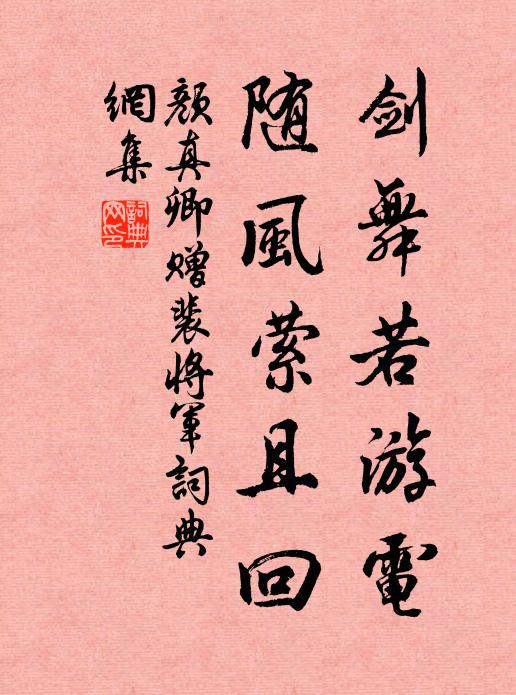 剑舞若游電
随風萦且回
顔真卿赠裴将军詞典
網集
詞典
网印